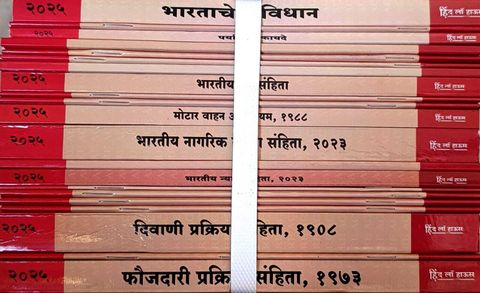 २०२५ भारताचे विधान हिंद लॉ हाऊस
२०२५ हिंद लॉ हाऊस
२०२५ भारतीय संहिता हिंद लॉ हाऊस
२०२५ मोटार वाहन १९८८ हिंद लॉ हाऊस
२०२५ भारतीय नागरिक संहिता, २०२३ हिंद लॉ हाऊस
२०२५ भारतीय हिता, २०२३ हिंद लॉ हाऊस
२०२५ दिवाणी प्रक्रिया हिता, १९०८ हिंद लॉ हाऊस
२०२५ फौजदारी संहिता, १९७३ हिंद लॉ हाऊस